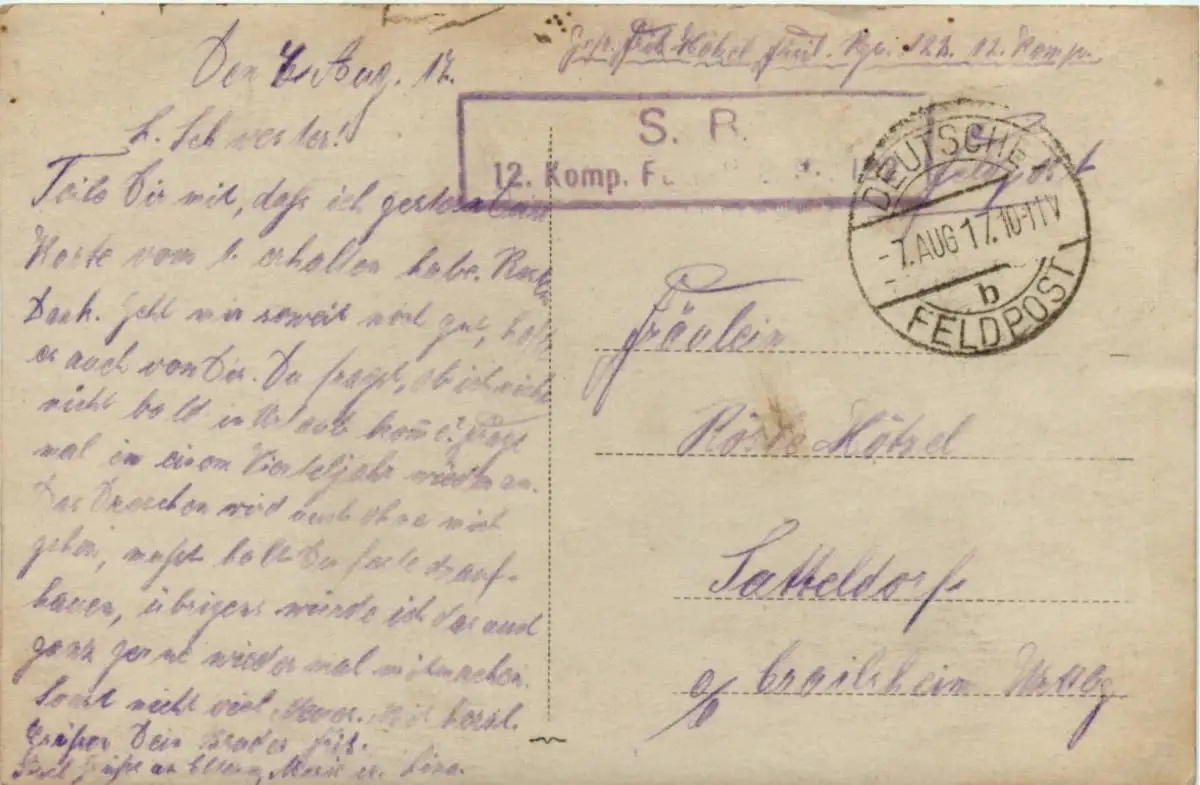 Den 6. Aug. 17.
L. Schwester!
Teile Dir mit, daß ich gestern Deine
Karte vom 1. erhalten habe. Besten
Dank. Geht mir soweit noch gut, hoffe
es auch von Dir. Du fragst, ob ich nicht
nicht bald in Urlaub komme?
mal in einem Vierteljahr wieder an.
Das Dreschen wird auch ohne mich
gehen, mußt halt Du feste drauf-
hauen, übrigens würde ich das auch
ganz gerne wieder mal mitmachen.
Sonst nicht viel Neues. Mit herzl.
Grüßen Dein Bruder Fritz.
Viele Grüße an Eltern, Marie u. Lina.
Hötzel Füsil. Rgt. 122. 12. Komp.
S. B.
12. Komp. F
Feldpost
DEUTSCHE
-7.AUG17.10-11V
b
FELDPOST
Fräulein
Hötzel
Satteldorf
a/b Crailsheim